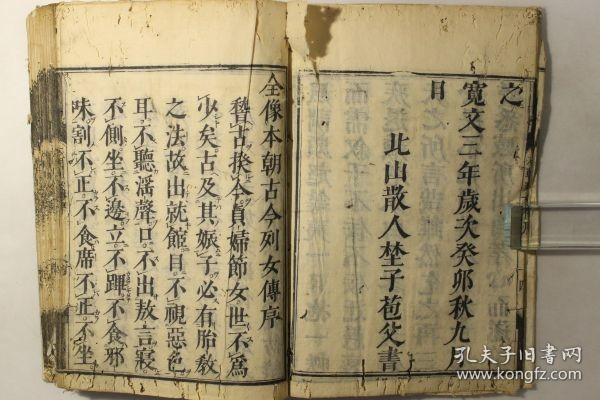 之
寛文三年歳次癸卯秋九月
日
北山散人埜子苞父書
全像本朝古今列女傳序
瞀古揆今貞婦節女世不爲
少矣古及其娠子必有胎教
之法故出就館目不視惡色
耳不聽滛聲口不出敖言寢
不側坐不邊立不蹕不食邪
味割不正不食席不正不坐
孔夫子旧书网
www.kongfz.com